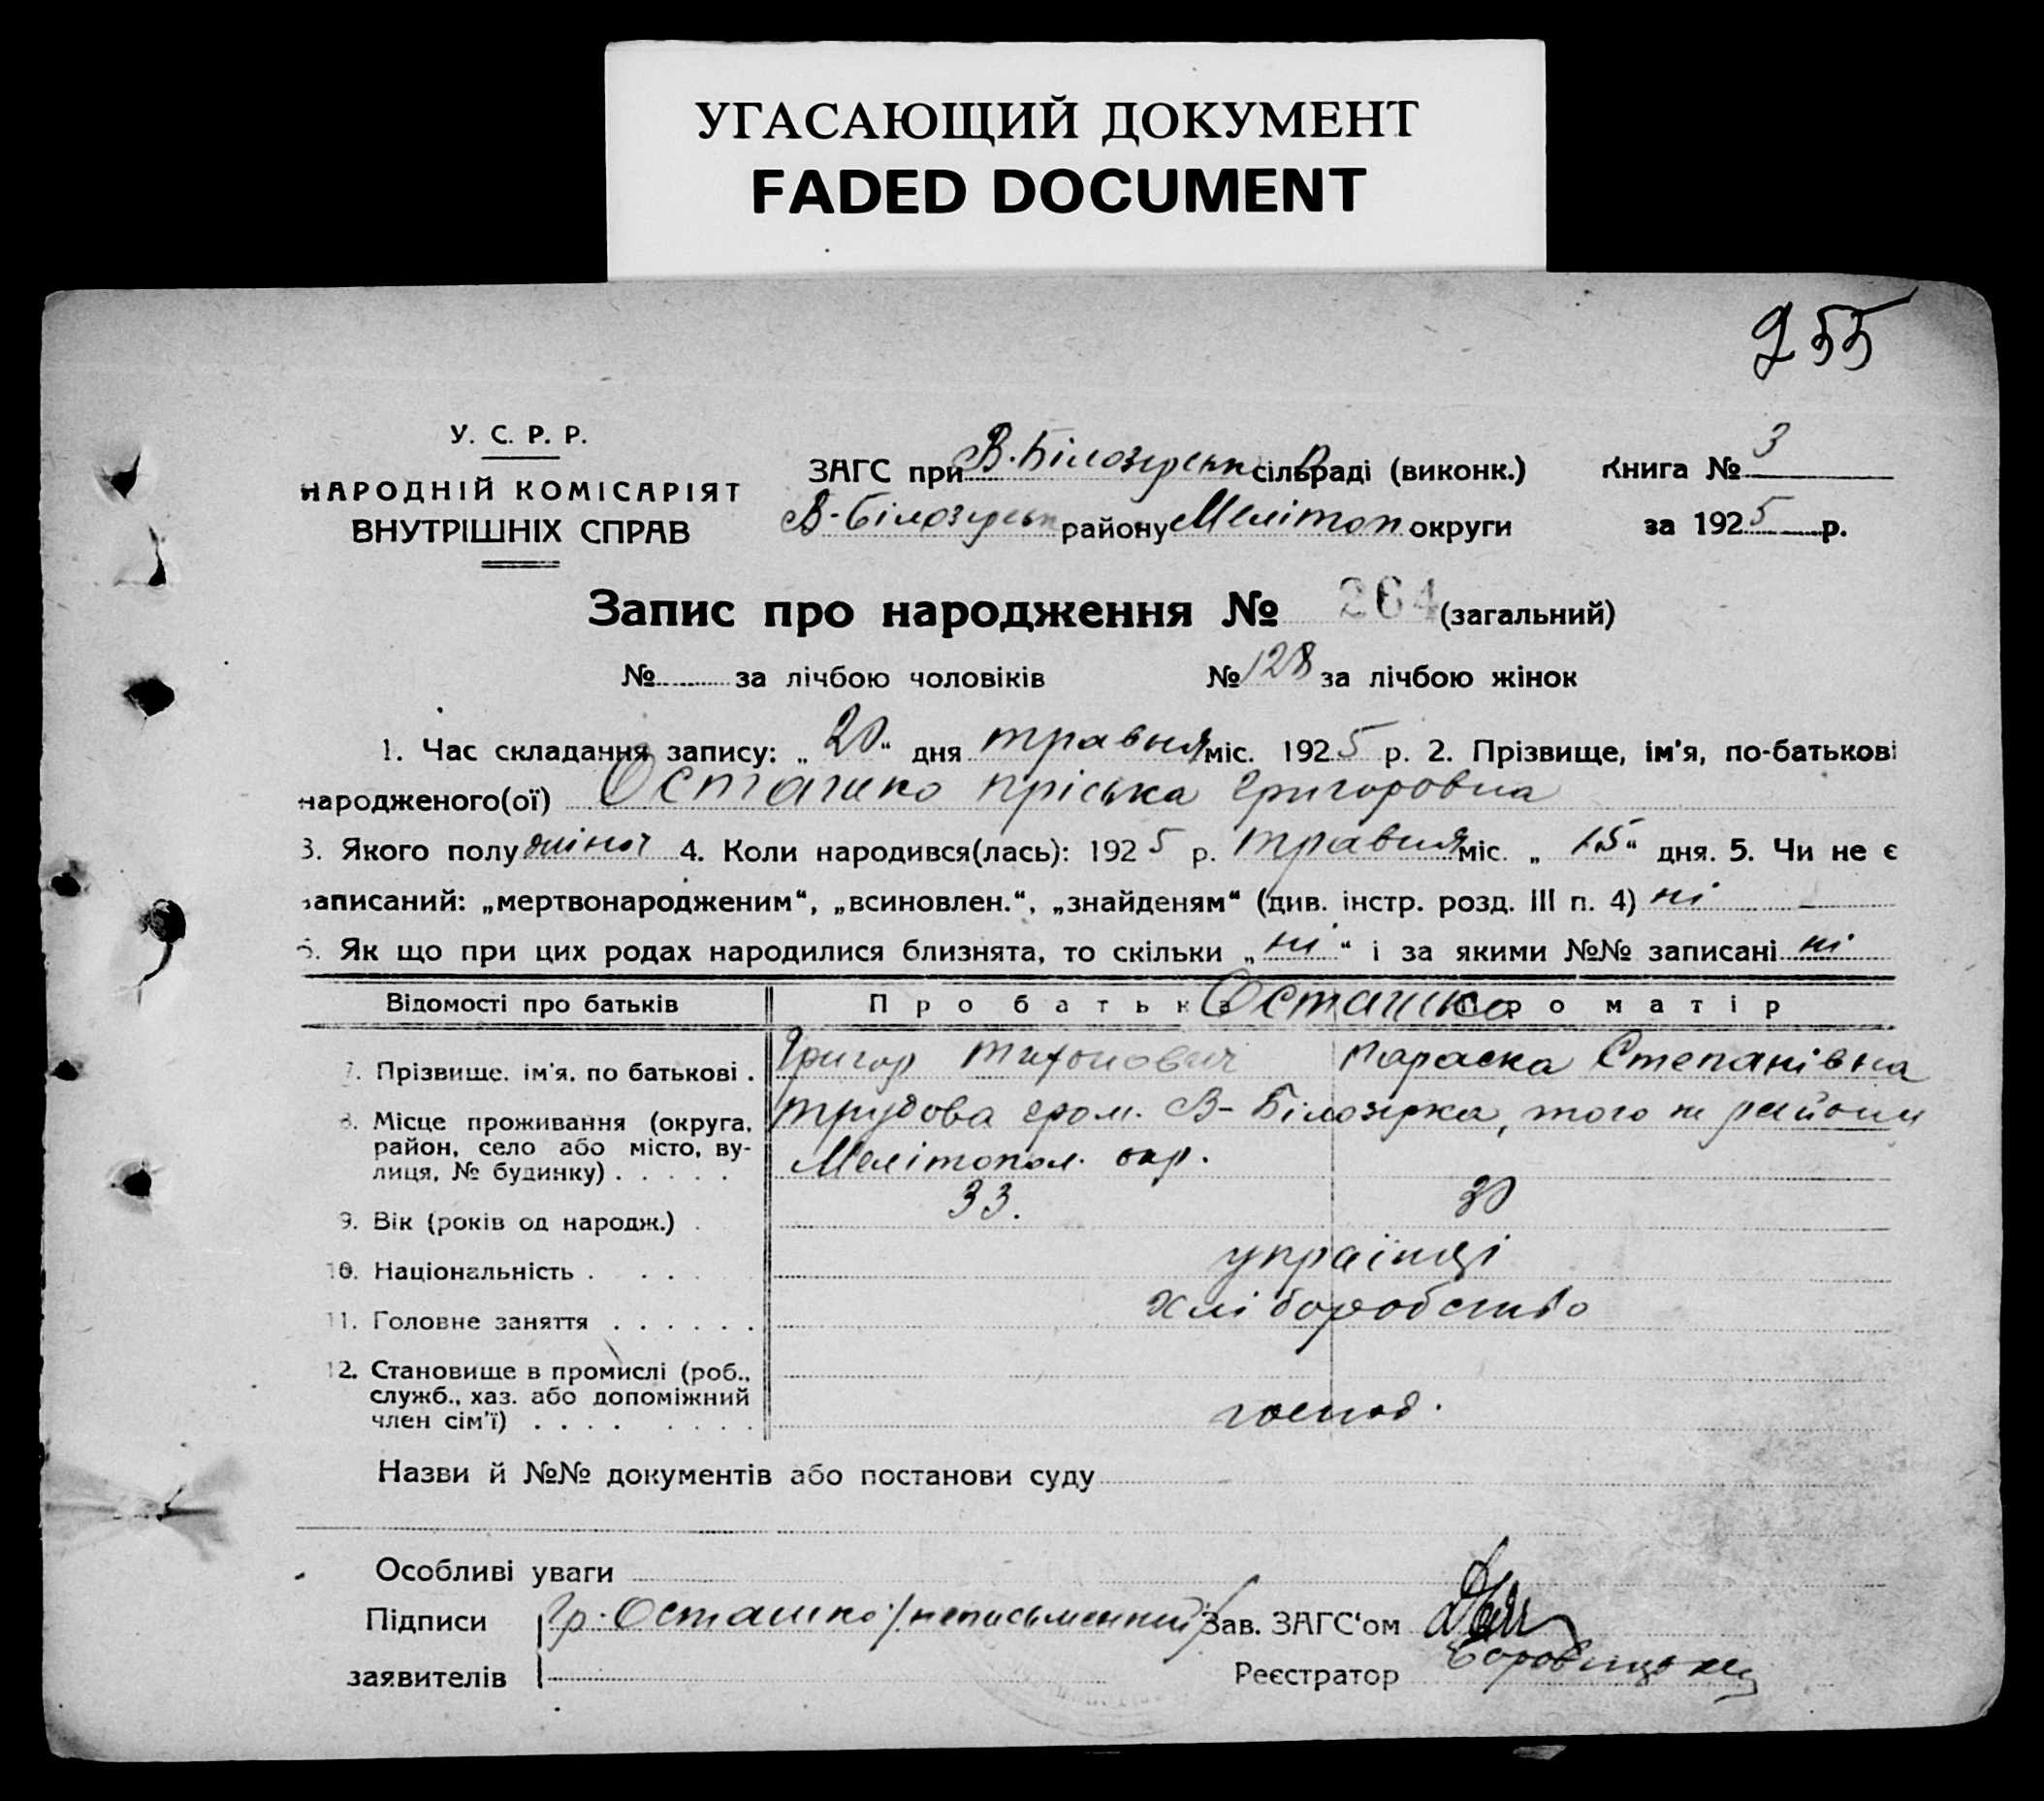 УГАСАЮЩИЙ ДОКУМЕНТ
FADED DOCUMENT
255
У. С. Р. Р.
НАРОДНІЙ КОМІСАРІЯТ
ВНУТРІШНІХ СПРАВ
ЗАГС при В.Білозерськ сільраді (виконк.)
В-Білозерськ району Мелітоп округи
Книга № 3
за 1925 р.
Запис про народження № 264 (загальний)
№ за лічбою чоловіків № 128 за лічбою жінок
1. Час складання запису: „20“ дня травня міс. 1925 р. 2. Прізвище, ім'я, по-батькові
народженого(ої) Осташко Пріська Григоровна
3. Якого полу жіноч 4. Коли народився(лась): 1925 р. травня міс. „15“ дня. 5. Чи не є
записаний: „мертвонародженим“, „всиновлен.“, „знайденям“ (див. інстр. розд. III п. 4) ні
6. Як що при цих родах народилися близнята, то скільки „ні“ і за якими №№ записані ні
Відомості про батьків Про батька Осташко Про матір
7. Прізвище, ім'я, по батькові . Григор Тихонович Параска Степанівна
8. Місце проживання (округа, трудова гром. В-Білозерка, того ж району
район, село або місто, ву-
лиця, № будинку) . . . . . Мелітопол. окр.
9. Вік (років од народж.) . 33. 30
10. Національність . . . . українці
11. Головне заняття . . . . . . хліборобство
12. Становище в промислі (роб.,
служб., хаз. або допоміжний
член сім'ї) . . . . . . . . господ.
Назви й №№ документів або постанови суду
Особливі уваги
Підписи Гр. Осташко /неписьменний/ Зав. ЗАГС'ом
заявителів Реєстратор